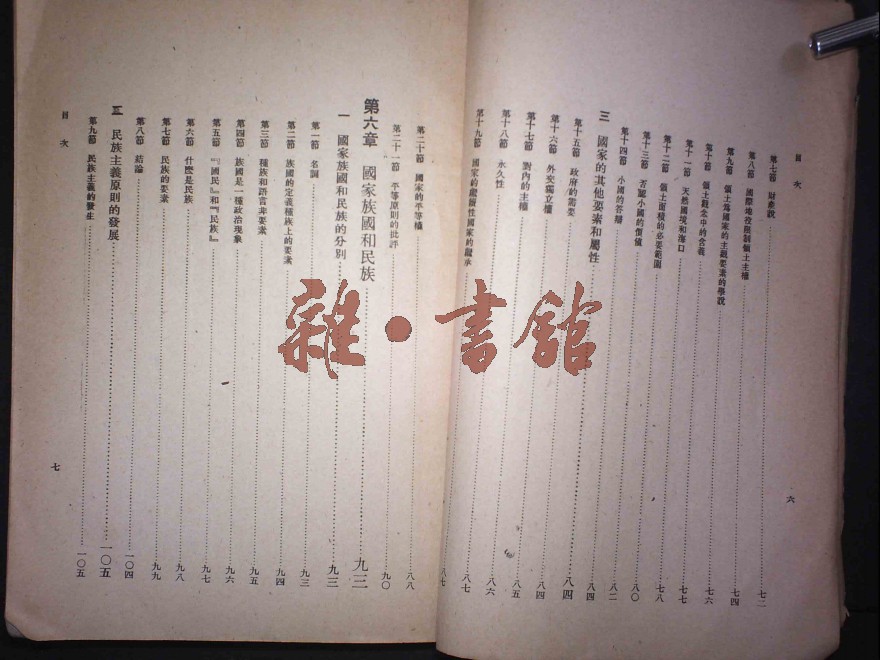 目次
第七節 財產說 七二
第八節 國際地役限制領土主權
第九節 領土為國家的主觀要素的學說 七四
第十節 領土觀念中的含義 七六
第十一節 天然國境和海口 七七
第十二節 領土面積的必要範圍 七八
第十三節 小國的價值 八〇
第十四節 小國的答辯 八二
三 國家的其他要素和屬性 八四
第十五節 政府的需要 八四
第十六節 外交獨立權 八四
第十七節 對內的主權 八五
第十八節 永久性 八六
第十九節 國家的繼續性國家的繼承 八七
六
八七
第二十節 國家的平等權 八八
第二十一節 平等原則的批評 九〇
第六章 國家族國和民族 九三
一 國家族國和民族的分別 九三
第一節 名詞 九三
第二節 族國的定義種族上的要素 九四
第三節 種族和語言非要素 九五
第四節 族國是一種政治現象 九六
第五節 『國民』和『民族』 九七
第六節 什麼是民族 九八
第七節 民族的要素 九九
第八節 結論 一〇四
二 民族主義原則的發展 一〇五
第九節 民族主義的發生 一〇五
目次
七
雜·書館